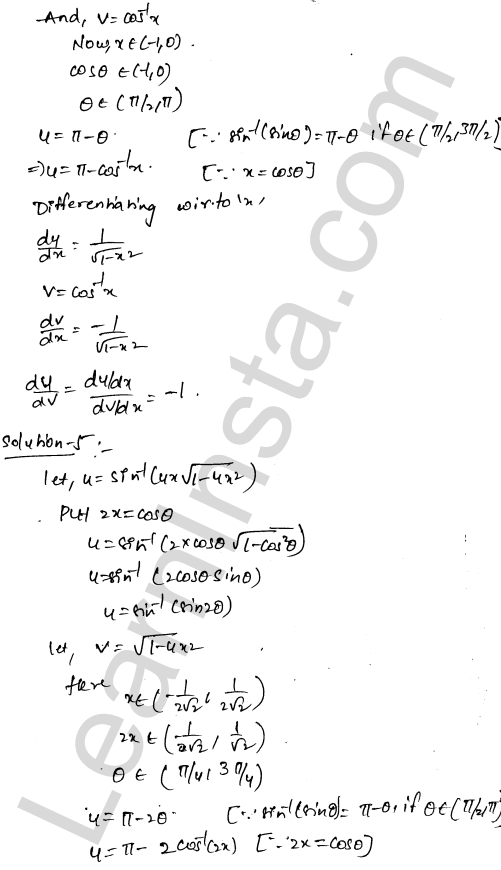 And, v = cos⁻¹x
Now, x ∈ (-1, 0).
cosθ ∈ (-1, 0)
θ ∈ (π/2, π)
u = π - θ. [∵ sin⁻¹(sinθ) = π - θ if θ ∈ (π/2, 3π/2)]
⇒ u = π - cos⁻¹x. [∵ x = cosθ]
Differentiating w.r.to 'x,
du/dx = 1/√1-x2
v = cos⁻¹x
dv/dx = -1/√1-x2
du/dv = du/dx / dv/dx = -1.
Solution-5:-
let, u = sin⁻¹(4x√1-4x2)
. Put 2x = cosθ
u = sin⁻¹(2×cosθ √1-cos²θ)
u = sin⁻¹(2cosθ sinθ)
u = sin⁻¹(sin2θ)
let, v = √1-4x2
Here x ∈ (-1/2√2, 1/2√2)
2x ∈ (-1/2√2, 1/√2)
θ ∈ (π/4, 3π/4)
u = π - 2θ. [∵ sin⁻¹(sinθ) = π - θ, if θ ∈ (π/2, π)
u = π - 2cos⁻¹(2x) [∵ 2x = cosθ]
Learninsta.com